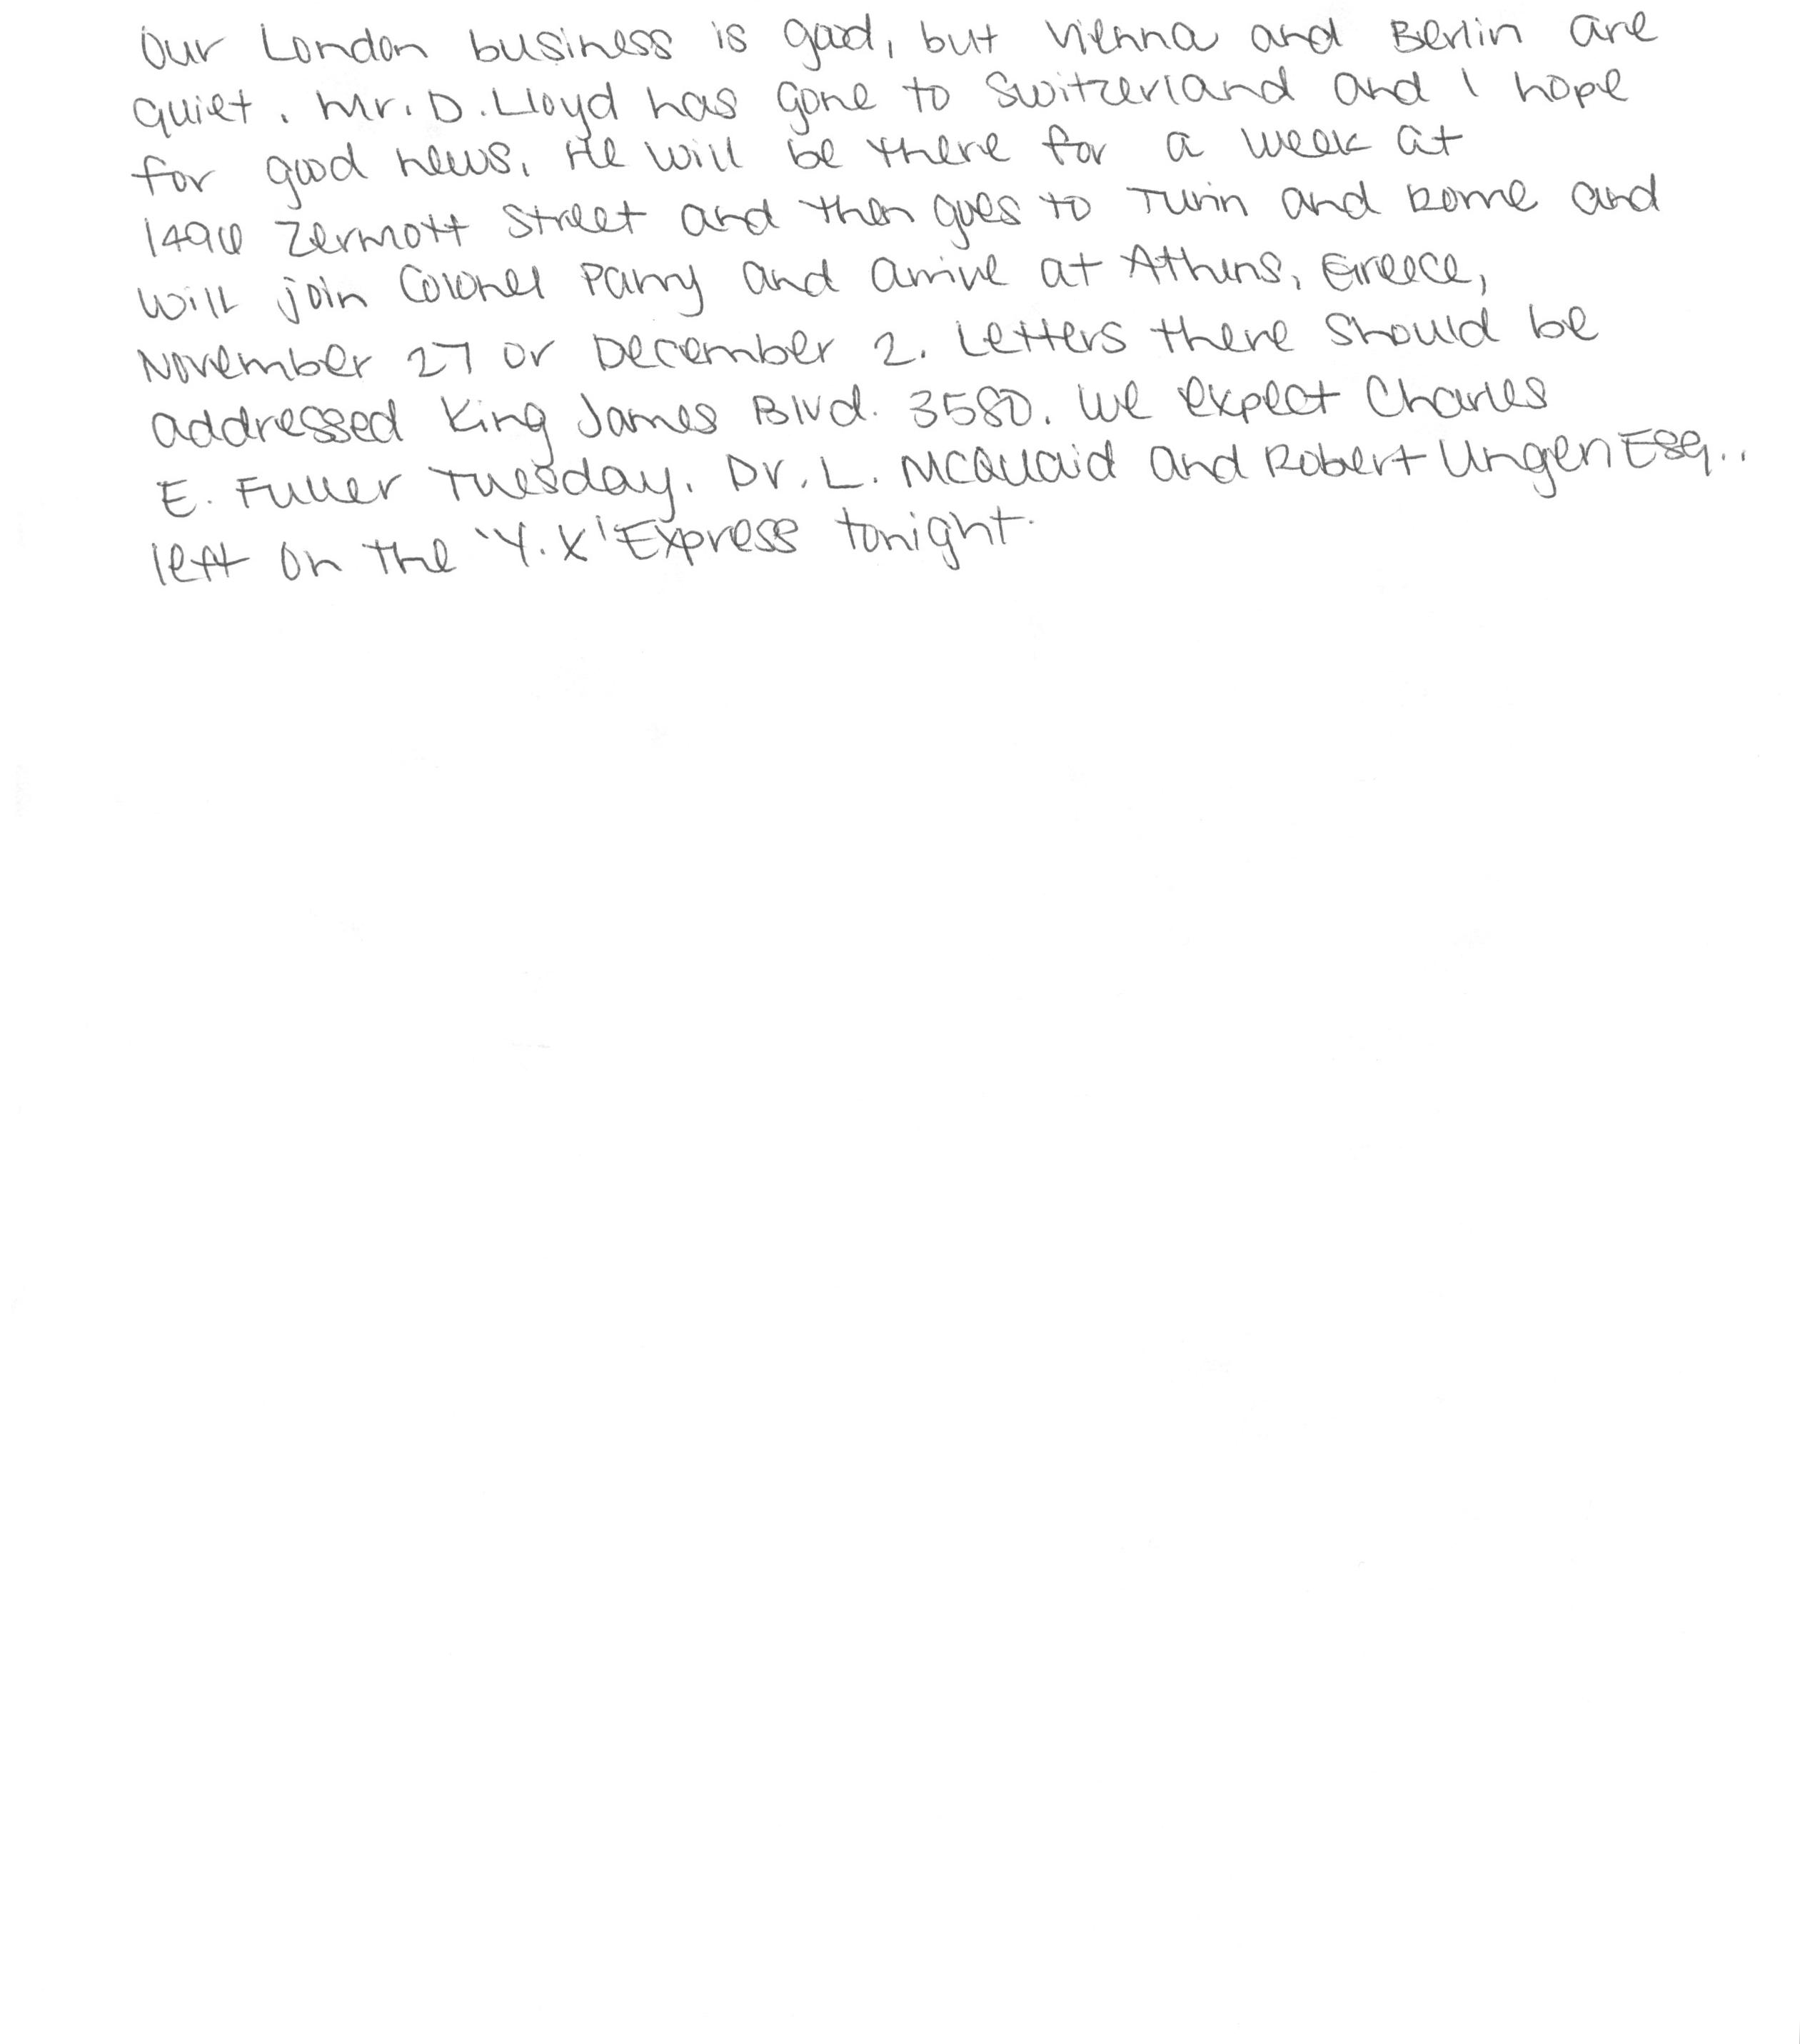 Our London business is good, but Vienna and Berlin are
quiet. Mr. D. Lloyd has gone to Switzerland and I hope
for good news. He will be there for a week at
1496 Zermott Street and then goes to Turin and Rome and
will join Colonel Parry and arrive at Athens, Greece,
November 27 or December 2. Letters there should be
addressed King James Blvd. 3580. We expect Charles
E. Fuller Tuesday. Dr. L. McQuaid and Robert Ungen Esq..
left on the 'Y.X' Express tonight.